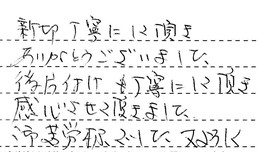 親切丁寧にして頂き
ありがとうございました。
後片付けも丁寧にして頂き
感心させて頂きました。
ご苦労様でした、又よろしく